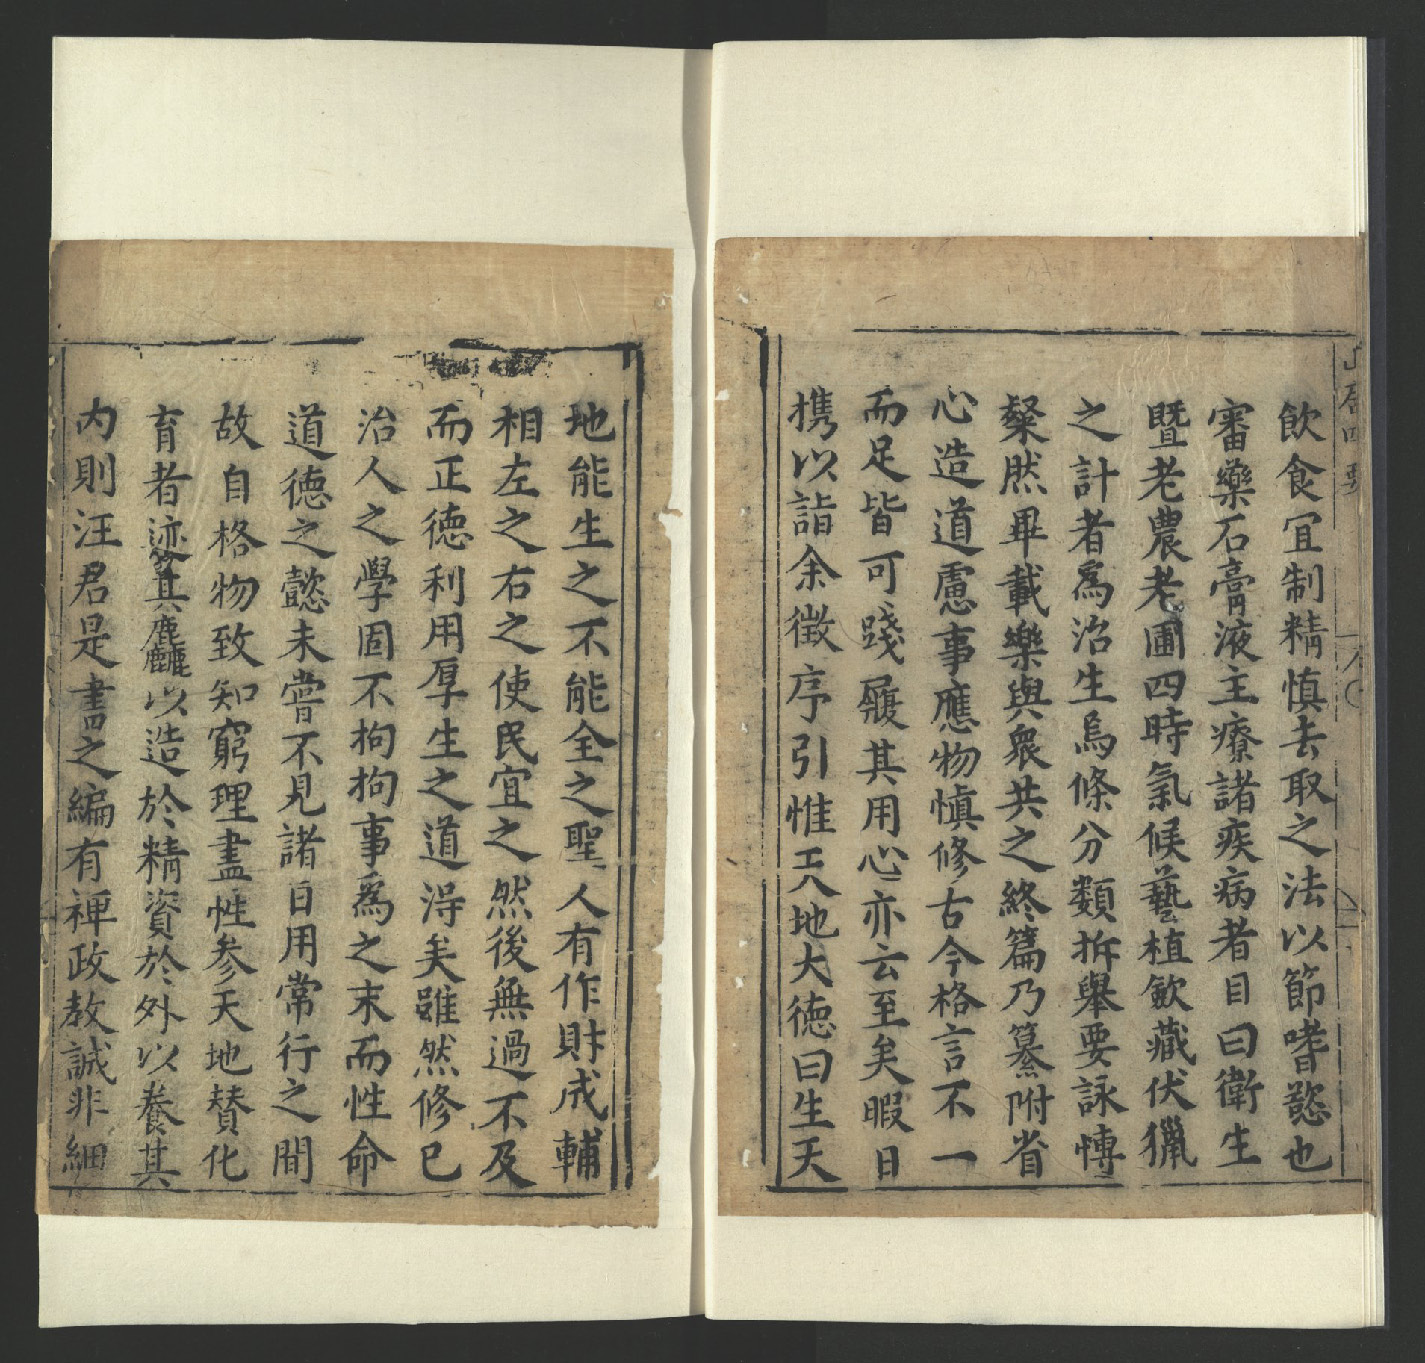 山居四要
飲食宜制精慎去取之法以節嗜慾也
審藥石膏液主療諸疾病者目曰衛生
暨老農老圃四時氣候藝植歛藏伏獵
之計者為治生焉條分類拆舉要詠愽
粲然畢載樂與衆共之終篇乃纂附省
心造道慮事應物愼修古今格言不一
而足皆可踐履其用心亦云至矣暇日
携以詣余徵序引惟天地大德曰生天
地能生之不能全之聖人有作財成輔
相左之右之使民宜之然後無過不及
而正德利用厚生之道淂矣雖然修己
治人之學固不拘拘事為之末而性命
道德之懿未嘗不見諸日用常行之間
故自格物致知窮理盡性参天地賛化
育者迹其麤以造於精資於外以養其
内則汪君是書之編有裨政教誠非細